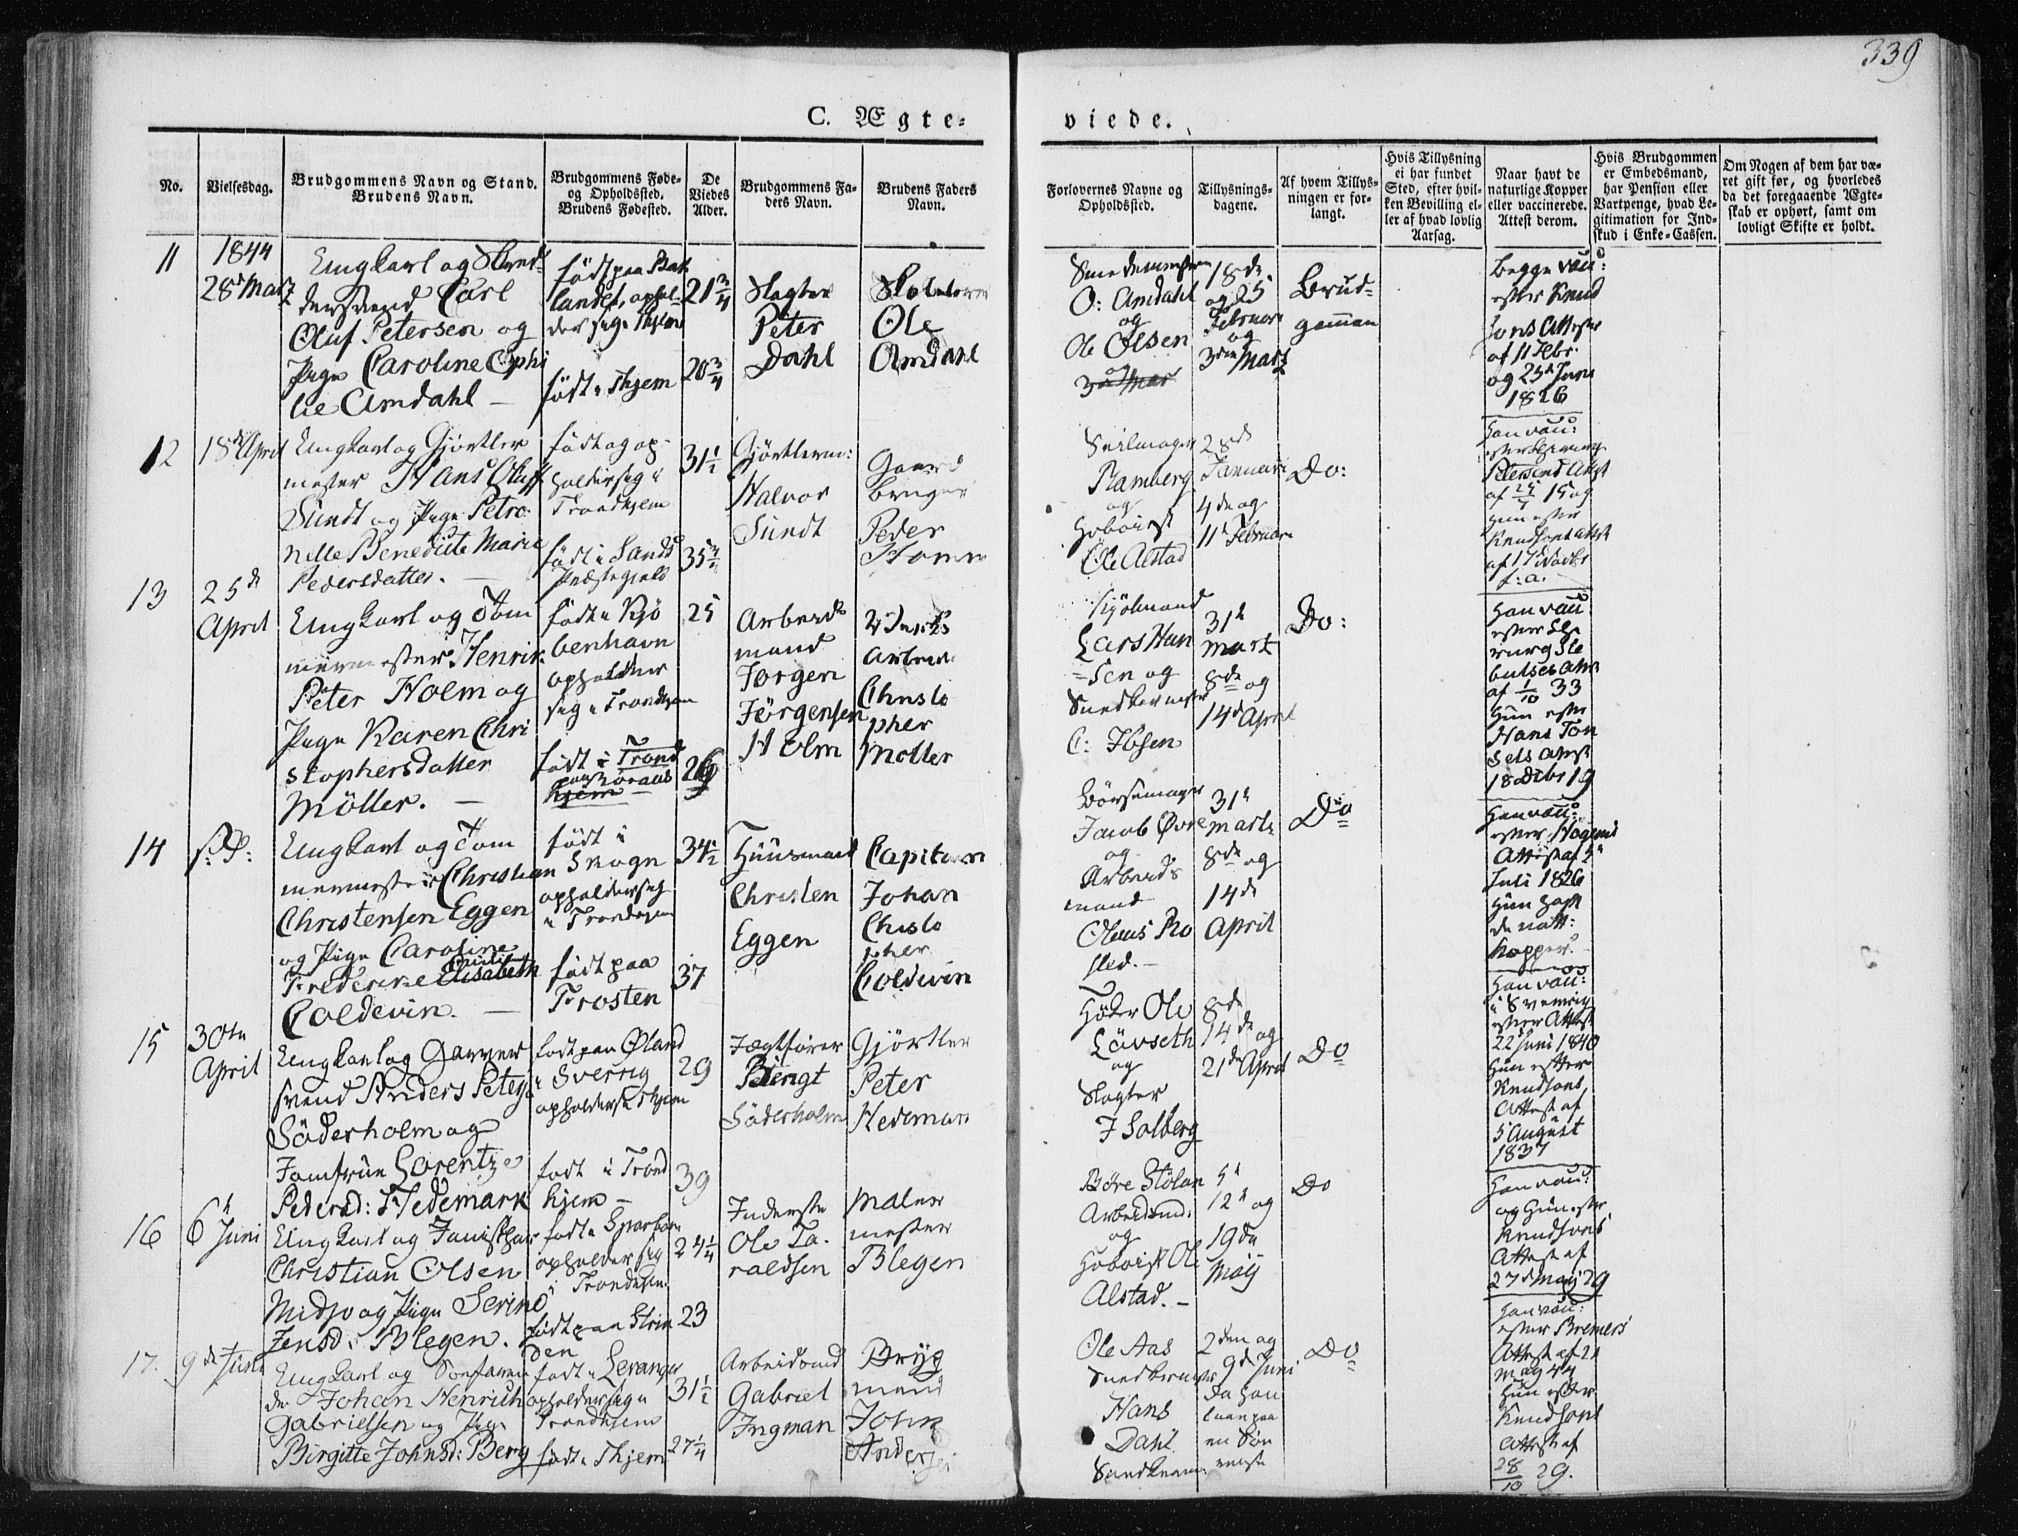 339
C. Ægte-
viede.
No.
Vielsesdag.
Brudgommens Navn og Stand.
Brudens Navn.
Brudgommens Føde-
og Opholdssted.
Brudens Fødested.
De
Viedes
Alder.
Brudgommens Fa-
ders Navn.
Brudens Faders
Navn.
Forlovernes Navne og
Opholdssted.
Tillysnings-
dagene.
Af hvem Tillys-
ningen er for-
langt.
Hvis Tillysning
ei har fundet
Sted, efter hvil-
ken Bevilling el-
ler af hvad lovlig
Aarsag.
Naar havt de
naturlige Kopper
eller vaccinerede.
Attest derom.
Hvis Brudgommen
er Embedsmand,
har Pension eller
Vartpenge, hvad Le-
gitimation for Ind-
skud i Enke-Cassen.
Om Nogen af dem har væ-
ret gift før, og hvorledes
da det foregaaende Ægte-
skab er ophørt, samt om
lovligt Skifte er holdt.
11
1844
28de Martz
Ungkarl og
Carl
Oluf Petersen og
Pige Caroline Ophi
lie Amdahl
født paa Bak
landet, ophol-
der sig i Thjem
født i Thjem
21 3/4
20 3/4
Slagter
Peter
Dahl
Ole
Amdahl
O: Amdahl
og
Ole Olsen
18de
og 25
Februar
og
3die Martz
Brud-
gommen
Begge vac:
efter Knud
sons Attester
af 11 Febr.
og 25de Juni
1826
12
18de April
Ungkarl og Gjørtler
mester Hans Oluff
Sundt og Pige Petro
nelle Benedicte Marie
Pedersdatter.
født og op-
holder sig i
Trondhjem
født i Sands
Præstegield
31 1/2
35 3/4
Gjørtlerm:
Halvor
Sundt
Gaard
bruger
Peder
Ramberg
og
Hoboist
Ole Alstad
28de
Januar
4de og
11te Februar
Do:
Han vac:
Petersens Attest
af 25/4 15 og
hun efter
Knudsons Attest
af 17de Novbr
f: a.
13
25de
April
Ungkarl og Tøm
mermester Henrik
Peter Holm og
Pige Karen Chri
stophersdatter
Möller.
født i Kjö
benhavn
opholder
sig i Trondhjem
født i Trond
hjem
25
26
Arbeids
mand
Jörgen
Jörgensen
Holm
Arbeids
Christo
pher
Möller
Lars Han
sen og
Snedkermester
C: Ibsen
31te
Mart
8de og
14de April
Do:
Han vac:
efter
af 1/10 33
Hun efter
Hans Ton
sets Attest
18 Decbr 19
14
s: D:
Ungkarl og Tøm
mermester Christian
Christensen Eggen
og Pige Caroline
Frederike Elisabeth
Coldevin.
født i
Skogn
opholder sig
i Trondhjem
født paa
Frosten
34 1/2
37
Huusmand
Christen
Eggen
Capitain
Johan
Christo
pher
Coldevin
Børsemager
Jacob Øvre
og
Arbeids
mand
Olaus Ro
sted.
31te
Martz
8de og
14de
April
Do
Han vac:
efter Hagens
Attest af 5te
Juli 1826
Hun havt
de natt:
Kopper.
15
30te
April
Ungkarl og Garver
svend Anders Peter
Söderholm og
Jomfrue Lorentze
Pedersd: Hedemark
født paa Øland
i Sverrig
opholder sig i Thjem
født i Trond
hjem
29
39
Jægtfører
Bengt
Söderholm
Gjørtler
Peter
Hedemark
Høker Ole
Løvseth
og
Slagter
J Solberg
8de
14de og
21de April
Do
Han vac:
i Sverrig
efter Attest
22 Juni 1840
Hun efter
Knudsons
Attest af
5 August
1837
16
6te
Juni
Ungkarl og
Christian Olsen
Midjo og Pige Serine
Jensd: Blegen.
født i Sparboen
opholder sig
i Trondhjem
født paa Strin
den
24 1/4
23
Inderste
Ole Ta
raldsen
Maler
mester
Blegen
Børe Stølan
Arbeidsmd:
og
Hoboist Ole
Alstad.
5te
12te og
19de
Maij
Do
Han vac:
og Hun efter
Knudsons
Attest af
27de Maij 29
17.
9de Juni
Ungkarl og Søefaren
de Johan Henrich
Gabrielsen og Pige
Birgitte Johnsd: Berg
født i Levanger
opholder sig i
Trondhjem
født i Thjem
31 1/2
27 1/4
Arbeidsmd
Gabriel
Ingman
Bryg
mand
John
Ole Aas
Snedkermester
Hans
Dahl
2den og
9de Juni
da han
Do
Han vac:
efter Bremers
Attest af 21
May 44
Hun efter
Knudsons
Attest af
28/10 29.